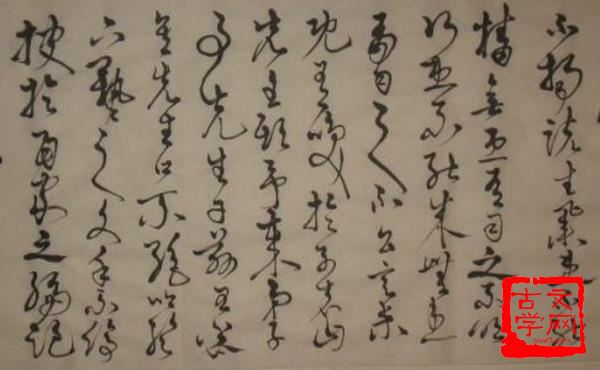 不揚諸生業患不能
精無患有司之不明
行患不能成無患
有司之不公言未
既有笑於列者曰
先生欺予哉弟子
事先生于茲有年
矣先生口不絕吟於
六藝之文手不停
披於百家之編記
古文
学网